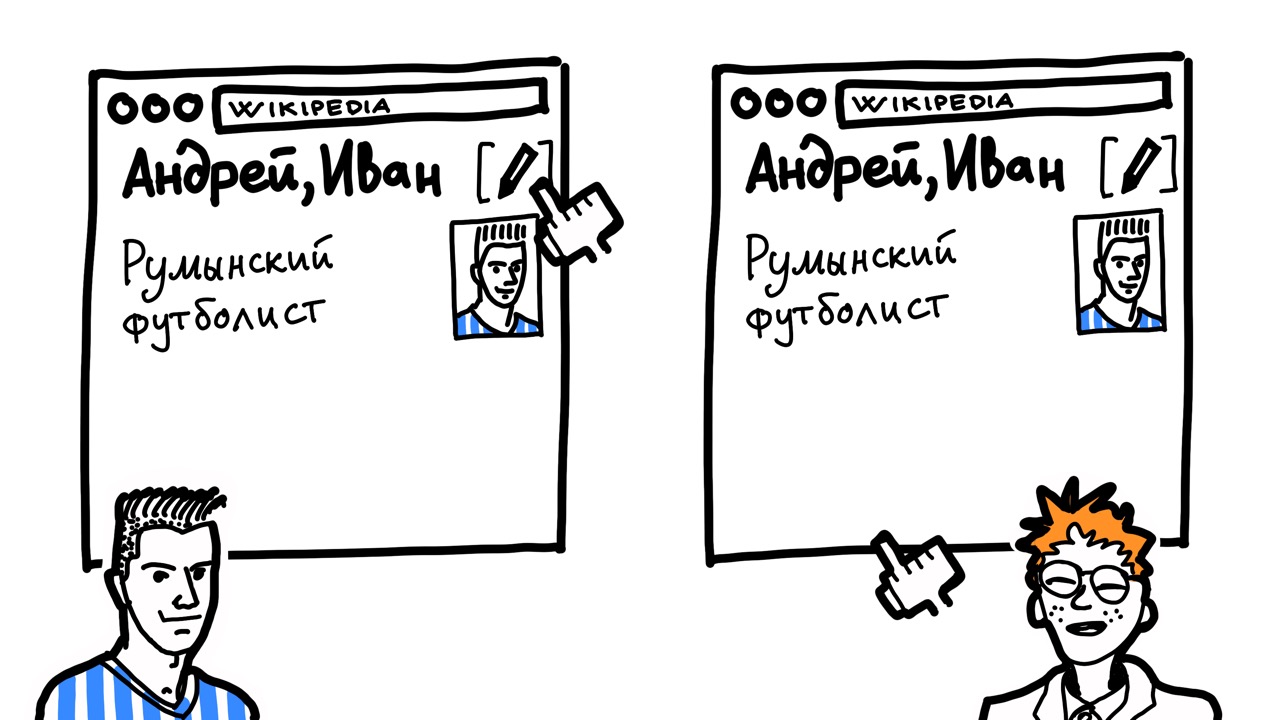 WIKIPEDIA
Андрей, Иван
Румынский
футболист
WIKIPEDIA
Андрей, Иван
Румынский
футболист